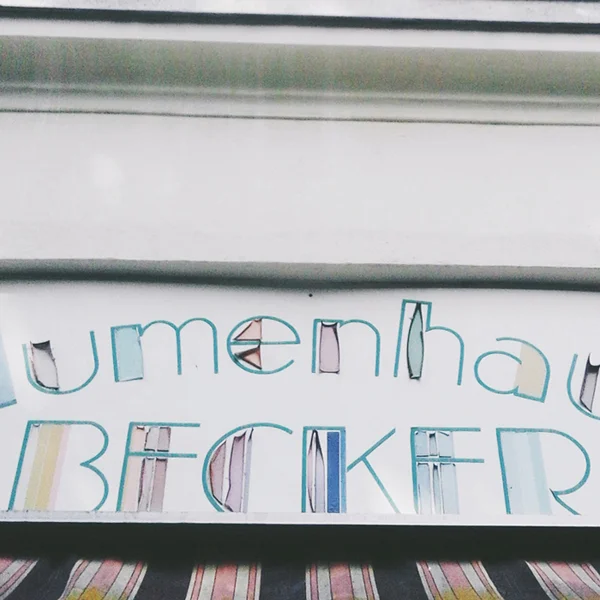 lumenhau
BECKER